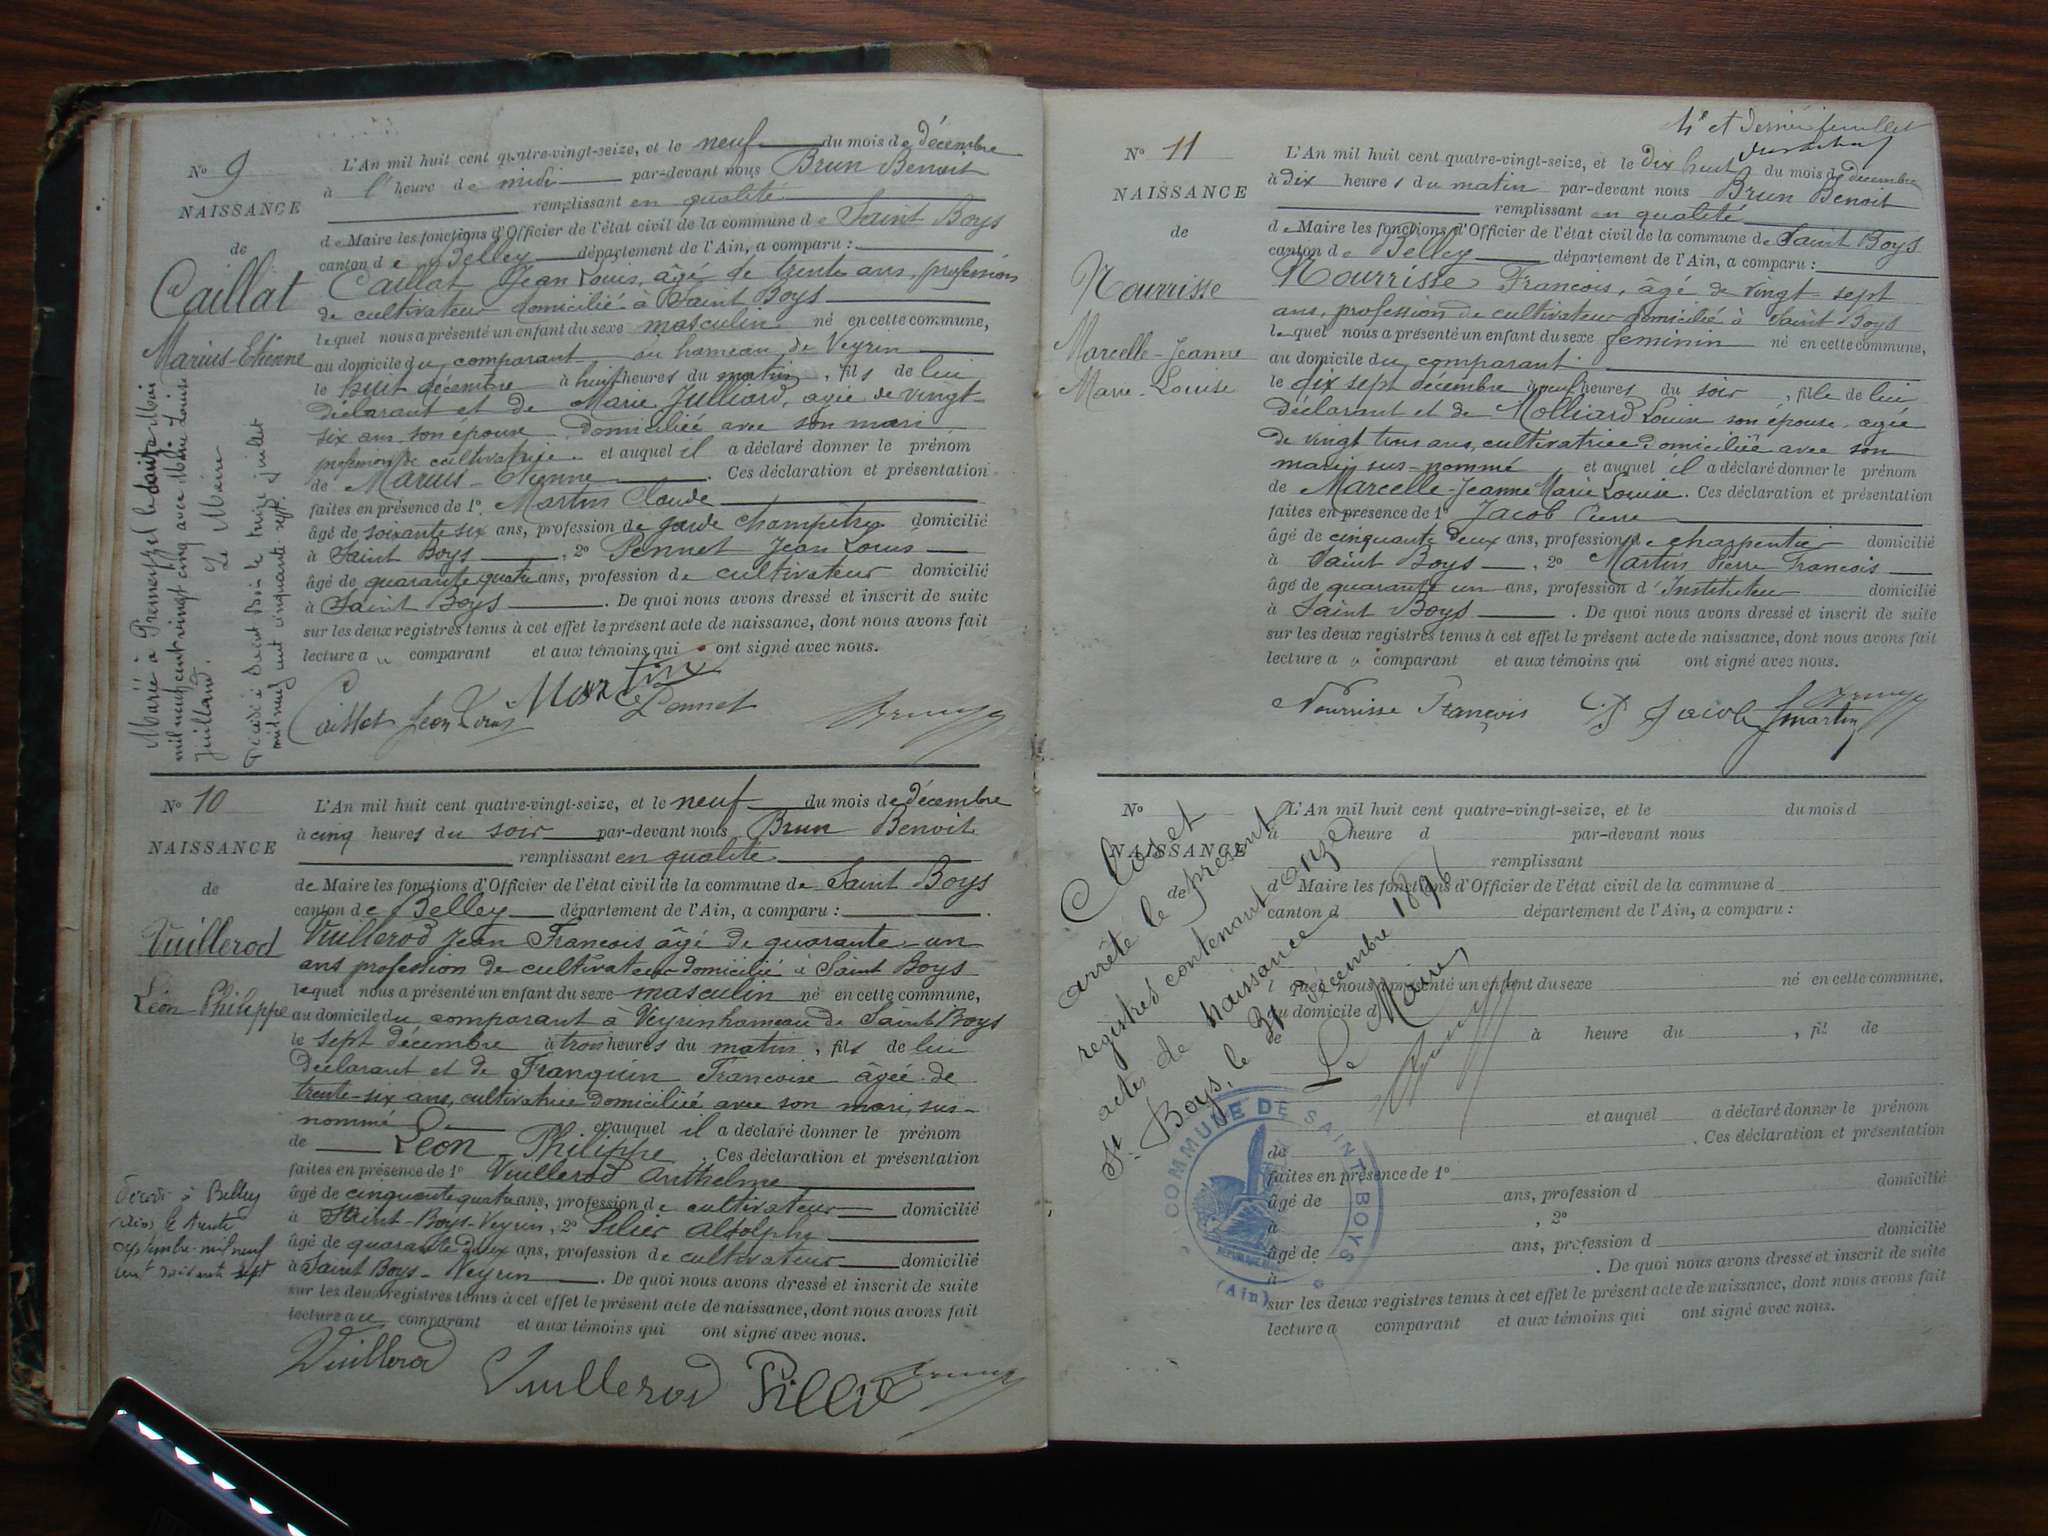 N° 9
NAISSANCE
de
Caillat
Marius-Etienne
L'An mil huit cent quatre-vingt-seize, et le neuf du mois de décembre
à l'heure de midi par-devant nous Brun Benoit
remplissant en qualité
de Maire les fonctions d'Officier de l'état civil de la commune de Saint Boys
canton de Belley département de l'Ain, a comparu :
Caillat Jean Louis, âgé de trente ans, profession
de cultivateur domicilié à Saint Boys
lequel nous a présenté un enfant du sexe masculin né en cette commune,
au domicile du comparant au hameau de Veyrin
le huit décembre à huit heures du matin, fils de lui
déclarant et de Marie Julliard, agée de vingt
six ans son épouse domiciliée avec son mari
profession de cultivatrice et auquel il a déclaré donner le prénom
de Marius-Etienne. Ces déclaration et présentation
faites en présence de 1° Martin Claude
âgé de soixante six ans, profession de garde champêtre domicilié
à Saint Boys, 2° Pennet Jean Louis
âgé de quarante quatre ans, profession de cultivateur domicilié
à Saint Boys. De quoi nous avons dressé et inscrit de suite
sur les deux registres tenus à cet effet le présent acte de naissance, dont nous avons fait
lecture au comparant et aux témoins qui ont signé avec nous.
Caillat Jean Louis Martin Pennet Brun
Marié à Premeyzel le
mil neuf cent vingt cinq avec Marie Louise
Juilland.
Le Maire
Décédé à Saint Bois le treize juillet
mil neuf cent cinquante sept.
N° 10
NAISSANCE
de
Vuillerod
Léon-Philippe
L'An mil huit cent quatre-vingt-seize, et le neuf du mois de décembre
à cinq heures du soir par-devant nous Brun Benoit
remplissant en qualité
de Maire les fonctions d'Officier de l'état civil de la commune de Saint Boys
canton de Belley département de l'Ain, a comparu :
Vuillerod Jean Francois âgé de quarante-un
ans profession de cultivateur domicilié à Saint Boys
lequel nous a présenté un enfant du sexe masculin né en cette commune,
au domicile du comparant à Veyrin hameau de Saint Boys
le sept décembre à trois heures du matin, fils de lui
déclarant et de Franquin Francoise âgée de
trente-six ans, cultivatrice domiciliée avec son mari, sus-
nommé et auquel il a déclaré donner le prénom
de Léon Philippe. Ces déclaration et présentation
faites en présence de 1° Vuillerod Anthelme
âgé de cinquante quatre ans, profession de cultivateur domicilié
à Saint-Boys-Veyrin, 2° Silier Adolphe
âgé de quarante deux ans, profession de cultivateur domicilié
à Saint Boys-Veyrin. De quoi nous avons dressé et inscrit de suite
sur les deux registres tenus à cet effet le présent acte de naissance, dont nous avons fait
lecture au comparant et aux témoins qui ont signé avec nous.
Vuillerod Vuillerod Brun
Décédé à Belley
(Ain) le trente
septembre mil neuf
cent soixante sept
4e et dernier feuillet
N° 11
NAISSANCE
de
Nourrisse
Marcelle-Jeanne
Marie-Louise
L'An mil huit cent quatre-vingt-seize, et le dix huit du mois de décembre
à dix heures du matin par-devant nous Brun Benoit
remplissant en qualité
de Maire les fonctions d'Officier de l'état civil de la commune de Saint Boys
canton de Belley département de l'Ain, a comparu :
Nourrisse Francois, âgé de vingt sept
ans, profession de cultivateur domicilié à Saint Boys
lequel nous a présenté un enfant du sexe feminin né en cette commune,
au domicile du comparant
le dix sept décembre à neuf heures du soir, fille de lui
déclarant et de Molliard Louise son épouse, agée
de vingt trois ans, cultivatrice domiciliée avec son
mari sus-nommé et auquel il a déclaré donner le prénom
de Marcelle-Jeanne Marie Louise. Ces déclaration et présentation
faites en présence de 1° Jacob Pierre
âgé de cinquante deux ans, profession de charpentier domicilié
à Saint Boys, 2° Martin Pierre Francois
âgé de quarante un ans, profession d'Instituteur domicilié
à Saint Boys. De quoi nous avons dressé et inscrit de suite
sur les deux registres tenus à cet effet le présent acte de naissance, dont nous avons fait
lecture au comparant et aux témoins qui ont signé avec nous.
Nourrisse François Jacob Martin Brun
N°
NAISSANCE
de
L'An mil huit cent quatre-vingt-seize, et le du mois d
à heure d par-devant nous
remplissant
d Maire les fonctions d'Officier de l'état civil de la commune d
canton d département de l'Ain, a comparu :
l quel nous a présenté un enfant du sexe né en cette commune,
au domicile d
le à heure du , fil de
et auquel a déclaré donner le prénom
de . Ces déclaration et présentation
faites en présence de 1°
âgé de ans, profession d domicilié
à , 2°
âgé de ans, profession d domicilié
à . De quoi nous avons dressé et inscrit de suite
sur les deux registres tenus à cet effet le présent acte de naissance, dont nous avons fait
lecture a comparant et aux témoins qui ont signé avec nous.
Clos et
arrêté le présent
registre contenant onze
actes de naissance
St Boys, le 31 décembre 1896
Le Maire,
Brun
COMMUNE DE SAINT BOYS
(Ain)